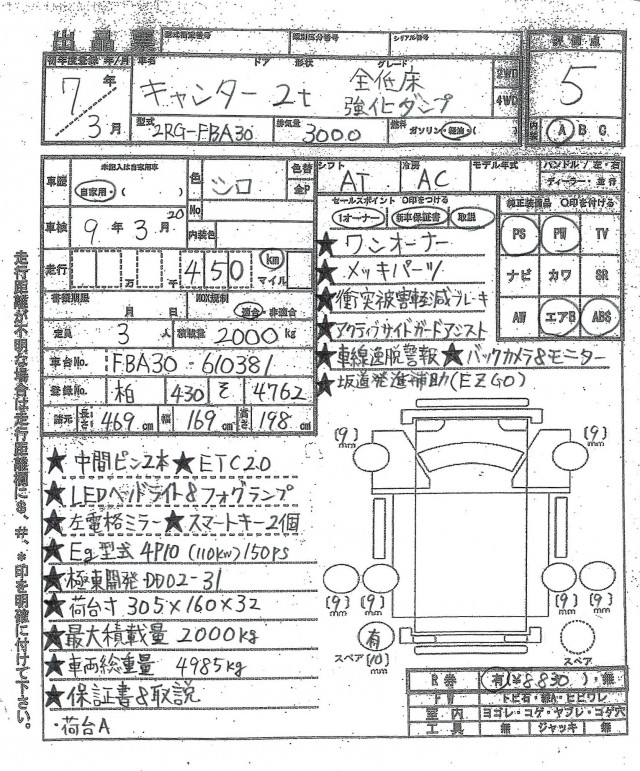 出品票 型式指定番号 類別区分番号 シリアル番号 評価点
初年度登録 年/月 車名 ドア 形状 グレード 2WD 4WD
7年/3月 キャンター 2t 全低床 強化ダンプ 5
型式 2RG-FBA30 排気量 3000 燃料 ガソリン・軽油・( 内装 A B C
車歴 未記入は自家用車 自家用・( ) 色 シロ 色替 全P シフト AT 冷房 AC モデル年式 ハンドル/左・右
ディーラー・並行
車検 9年3月20 No. 内装色
セールスポイント ○印をつける 1オーナー 新車保証書 取説
純正装備品 ○印を付ける
PS PW TV
ナビ カワ SR
AW エアB ABS
走行 万 千 450 km マイル
★ワンオーナー
★メッキパーツ
★衝突被害軽減ブレーキ
★アクティブサイドガードアシスト
★車線逸脱警報★バックカメラ&モニター
★坂道発進補助(EZGO)
書類期限 月 日 NOX規制 適合・非適合
定員 3人 積載量 2000kg
車台No. FBA30-610381
登録No. 柏 430 そ 4762
諸元 長さ 469cm 幅 169cm 高さ 198cm
★中間ピン2本★ETC2.0
★LEDヘッドライト&フォグランプ
★左電格ミラー★スマートキー2個
★Eg型式 4P10(110kw)150ps
★極東開発DD02-31
★荷台寸 305×160×32
★最大積載量 2000kg
★車両総重量 4985kg
★保証書&取説
・荷台A
(9)mm (9)mm
(9)mm (9)mm (9)mm (9)mm
有 スペア(10)mm スペア
R券 有(¥8830)・無
FW トビ石・線A・ヒビワレ
室内 ヨゴレ・コゲ・ヤブレ・コゲ穴
工具 無 ジャッキ 無
走行距離が不明な場合は走行距離欄に$、#、*印を明確に付けて下さい。